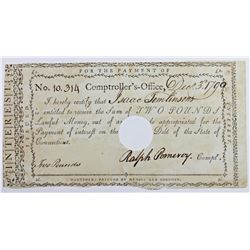 FOR THE PAYMENT OF
INTEREST
No. 10,314 Comptroller's-Office, Dec. 3 1790
I hereby certify that Isaac Tomlinson
is entitled to receive the Sum of TWO POUNDS
Lawful Money, out of appropriated for the
Payment of interest on the Debt of the State of
Connecticut.
Two Pounds Ralph Pomeroy, Compt.
HARTFORD: PRINTED BY HUDSON AND GOODWIN.